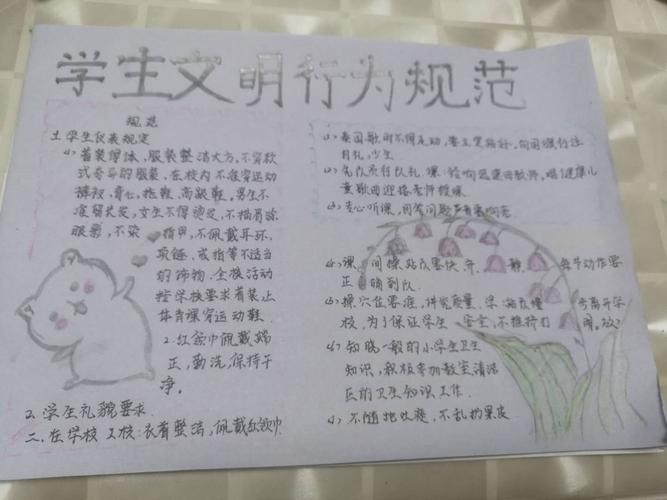 学生文明行为规范
规范
1.学生仪表规定
(1)着装得体,服装整洁大方,不穿款
式奇异的服装,在校内不准穿运动
裤衩,背心,拖鞋,高跟鞋,男生不
准留长发,女生不得烫发,不描眉涂
眼影,不染指甲,不佩戴耳环,
项链,戒指等不适当
的饰物,全校活动
按学校要求着装上
体育课穿运动鞋.
2.红领巾佩戴端
正,勤洗,保持干
净.
2.学生礼貌要求.
二.在学校 衣着整洁,佩戴红领巾
奏国歌时不得走动,要立定站好,向国旗行注
目礼,
先队员行队礼.课 铃响迅速回教师,唱健康儿
童歌曲迎接老师授课
专心听课,回答问题声音要响亮
课 间操站队要快 齐 静 每节动作要
正确到
操穴位要准,讲究质量.
离开学
校,为了保证学生 安全,不推桥打
知晓一般的小学生卫生
知识,积极参加教室清洁
区的卫生知识工作.
不随地吐痰,不乱扔果皮